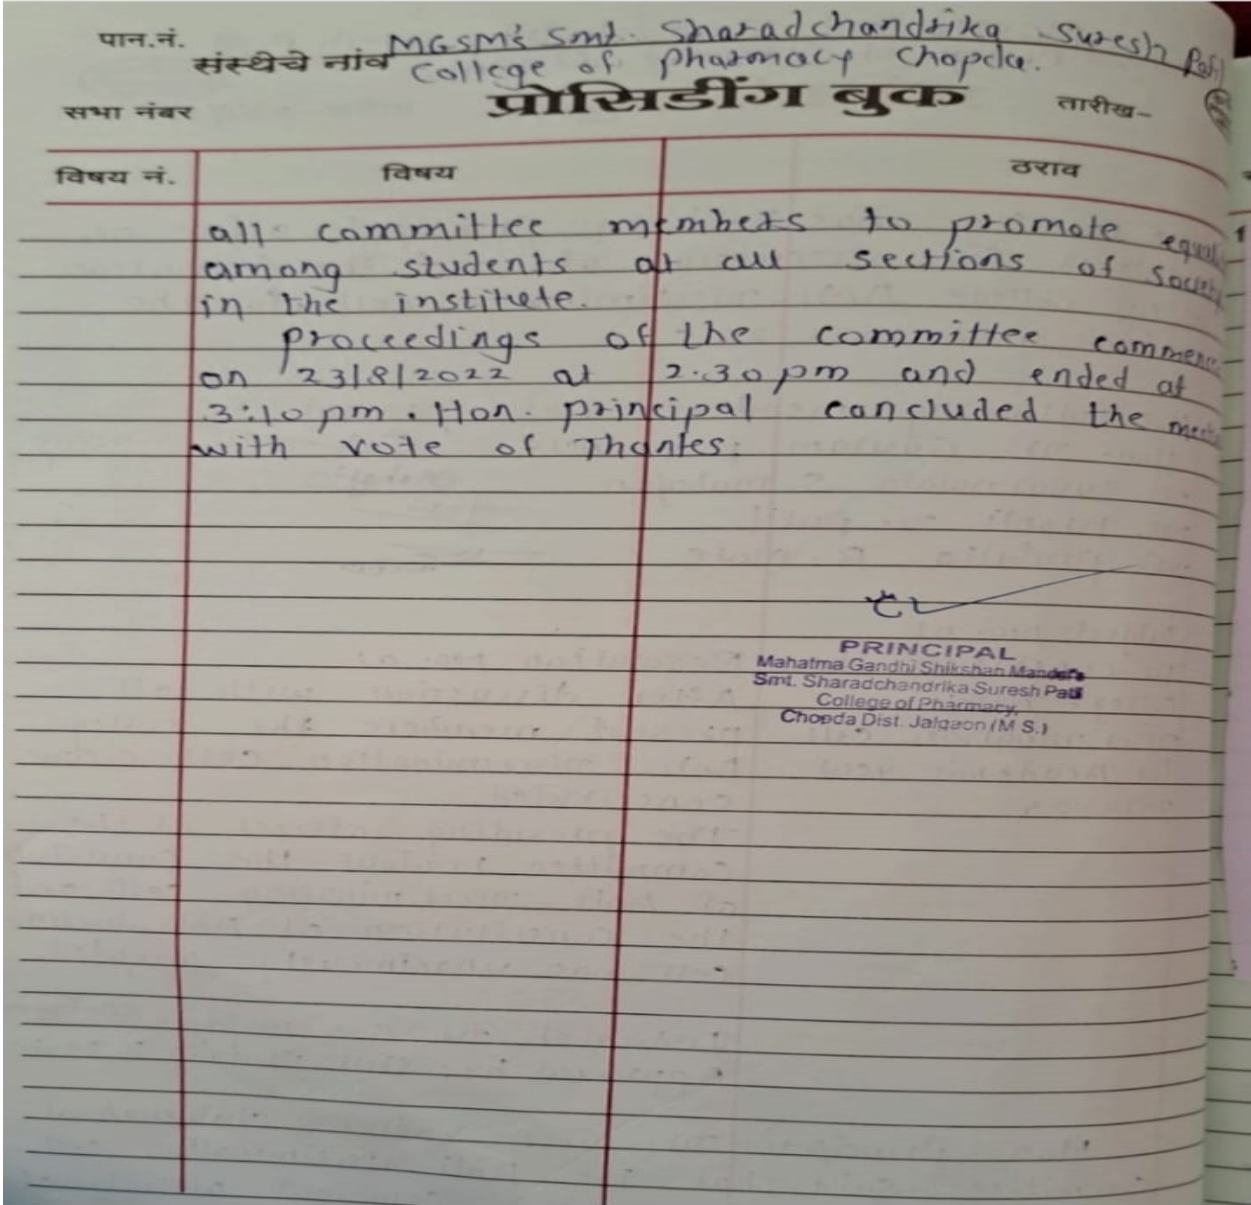 पान.नं.
MGSM's Smt. Sharadchandrika Suresh Patil
संस्थेचे नांव College of Pharmacy Chopda.
सभा नंबर प्रोसिडींग बुक तारीख-
विषय नं. विषय ठराव
all committee members to promote
among students at all sections of Society
in the institute.
proceedings of the committee
on 23/8/2022 at 2.30pm and ended at
3:10 pm. Hon. principal concluded the
with vote of Thanks.
PRINCIPAL
Mahatma Gandhi Shikshan Mandal's
Smt. Sharadchandrika Suresh Patil
College of Pharmacy,
Chopda Dist. Jalgaon (M S.)